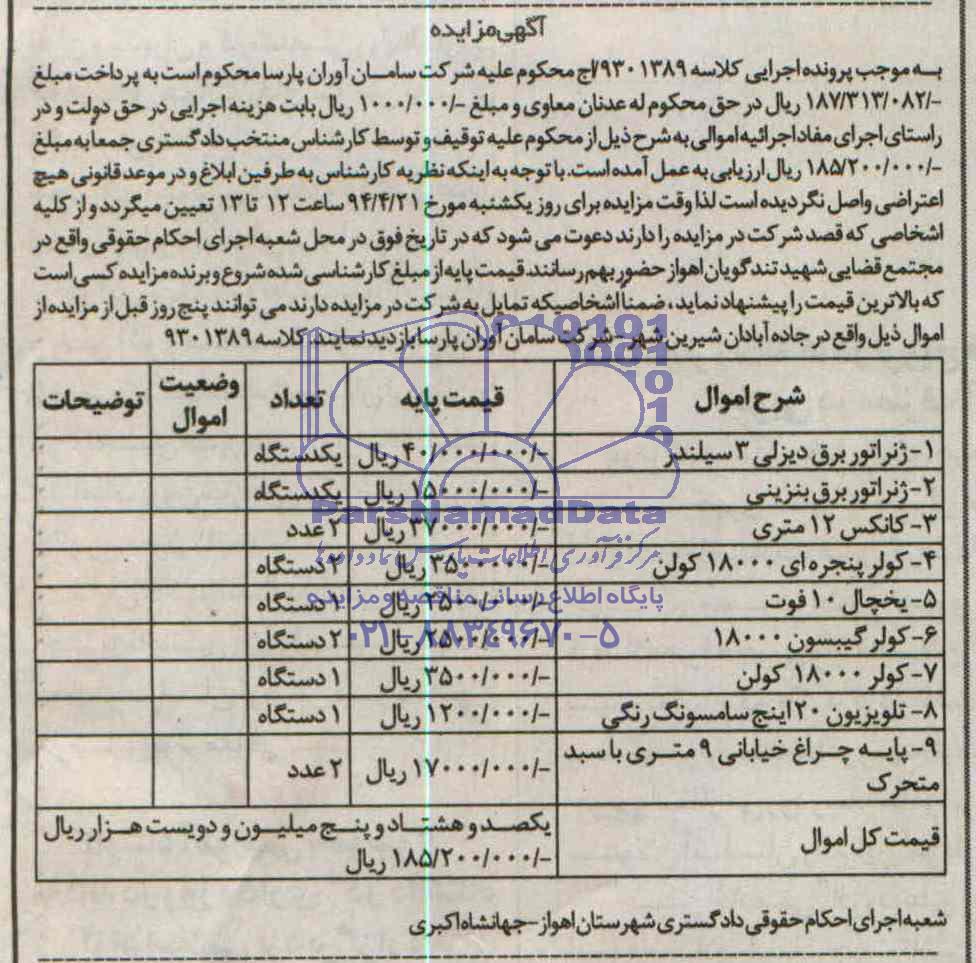 آگهی مزایده
بـه موجب پرونده اجرایی کلاسه ۹۳۰۱۳۸۹/اج محکوم علیه شرکت سامـان آوران پارسا محکوم است به پرداخت مبلغ
-/۱۸۷/۳۱۳/۰۸۲ ریال در حق محکوم له عدنان معاوی و مبلغ -/۱۰۰۰/۰۰۰ ریال بابت هزینه اجرایی در حق دولت و در
راستای اجرای مفاد اجرائیه اموالی به شرح ذیل از محکوم علیه توقیف و توسط کارشناس منتخب دادگستری جمعاً به مبلغ
-/۱۸۵/۲۰۰/۰۰۰ ریال ارزیابی به عمل آمده است. با توجه به اینکه نظریه کارشناس به طرفین ابلاغ و در موعد قانونی هیچ
اعتراضی واصل نگردیده است لذا وقت مزایده برای روز یکشنبه مورخ ۹۴/۴/۲۱ ساعت ۱۲ تا ۱۳ تعیین میگردد و از کلیه
اشخاصی که قصد شرکت در مزایده را دارند دعوت می شود که در تاریخ فوق در محل شعبه اجرای احکام حقوقی واقع در
مجتمع قضایی شهید تندگویان اهواز حضور بهم رسانند. قیمت پایه از مبلغ کارشناسی شده شروع و برنده مزایده کسی است
که بالاترین قیمت را پیشنهاد نماید، ضمناً اشخاصیکه تمایل به شرکت در مزایده دارند می توانند پنج روز قبل از مزایده از
اموال ذیل واقع در جاده آبادان شیرین شهر - شرکت سامان آوران پارسا بازدید نمایند. کلاسه ۹۳۰۱۳۸۹
شرح اموال قیمت پایه تعداد وضعیت اموال توضیحات
۱- ژنراتور برق دیزلی ۳ سیلندر -/۴۰/۰۰۰/۰۰۰ ریال یکدستگاه
۲- ژنراتور برق بنزینی -/۱۵۰۰۰/۰۰۰ ریال یکدستگاه
۳- کانکس ۱۲ متری -/۳۷۰۰۰/۰۰۰ ریال ۲ عدد
۴- کولر پنجره ای ۱۸۰۰۰ کولن ریال ۲ دستگاه
۵- یخچال ۱۰ فوت ریال ۱ دستگاه
۶- کولر گیبسون ۱۸۰۰۰ ریال ۲ دستگاه
۷- کولر ۱۸۰۰۰ کولن -/۳۵۰۰/۰۰۰ ریال ۱ دستگاه
۸- تلویزیون ۲۰ اینچ سامسونگ رنگی -/۱۲۰۰/۰۰۰ ریال ۱ دستگاه
۹- پایه چراغ خیابانی ۹ متری با سبد متحرک -/۱۷۰۰۰/۰۰۰ ریال ۲ عدد
قیمت کل اموال یکصد و هشتـاد و پنـج میلیـون و دویست هـزار ریال
-/۱۸۵/۲۰۰/۰۰۰ ریال
شعبه اجرای احکام حقوقی دادگستری شهرستان اهواز - جهانشاه اکبری
ParsNamadData
مرکز فرآوری اطلاعات پارس نماد داده ها
پایگاه اطلاع رسانی مناقصه و مزایده
۰۲۱-۸۸۳۴۹۶۷۰-۵